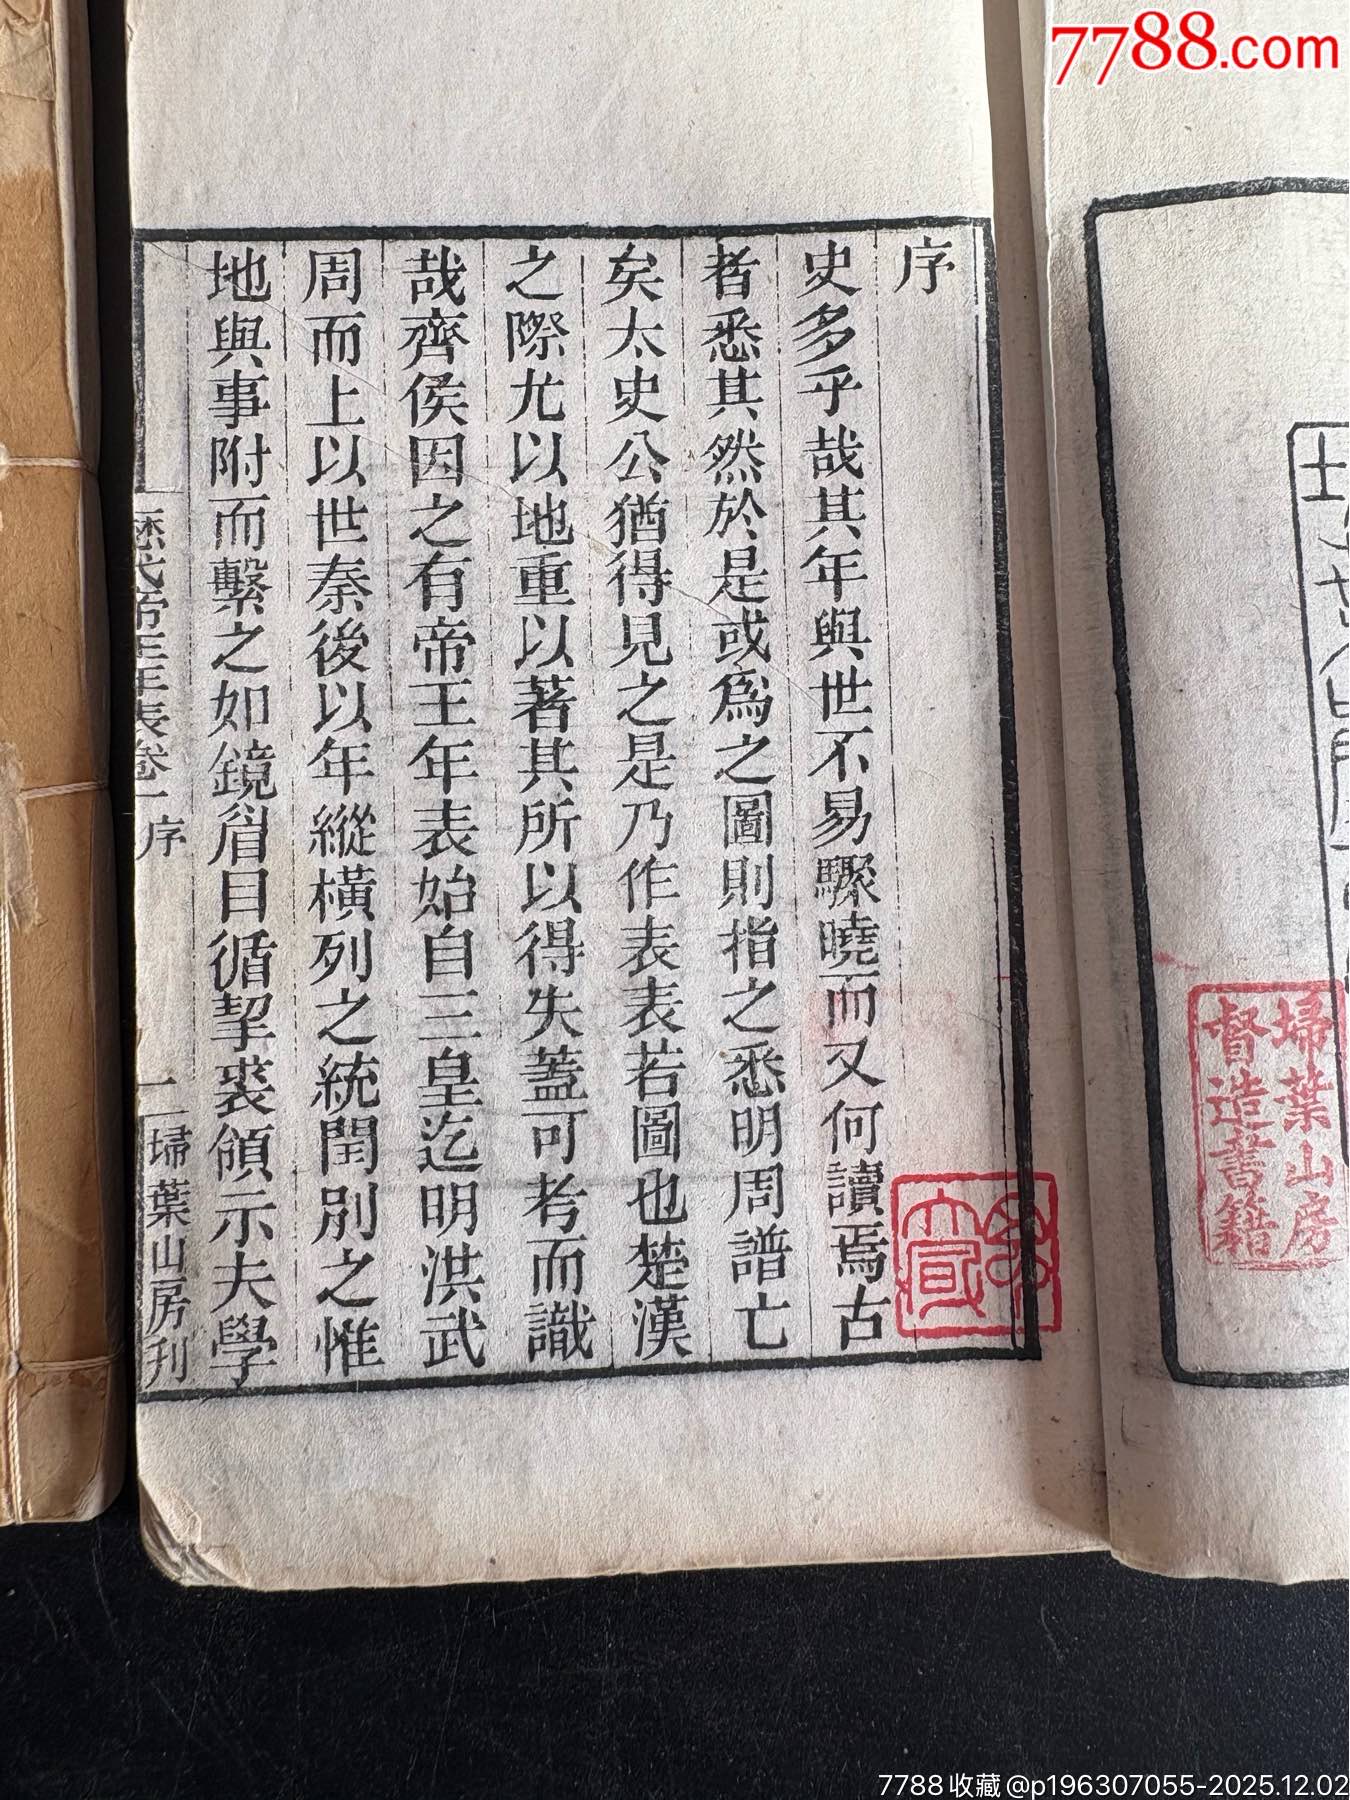 7788.com
序
史多乎哉其年與世不易驟曉而又何讀焉古
者悉其然於是或爲之圖則指之悉明周譜亡
矣太史公猶得見之是乃作表表若圖也楚漢
之際尤以地重以著其所以得失蓋可考而識
哉齊侯因之有帝王年表始自三皇迄明洪武
周而上以世秦後以年縱橫列之統閏別之惟
地與事附而繫之如鏡眉目循挈裘領示夫學
歷代帝王年表卷一序
一
掃葉山房刊
掃葉山房
督造書籍
7788收藏@p196307055-2025.12.02